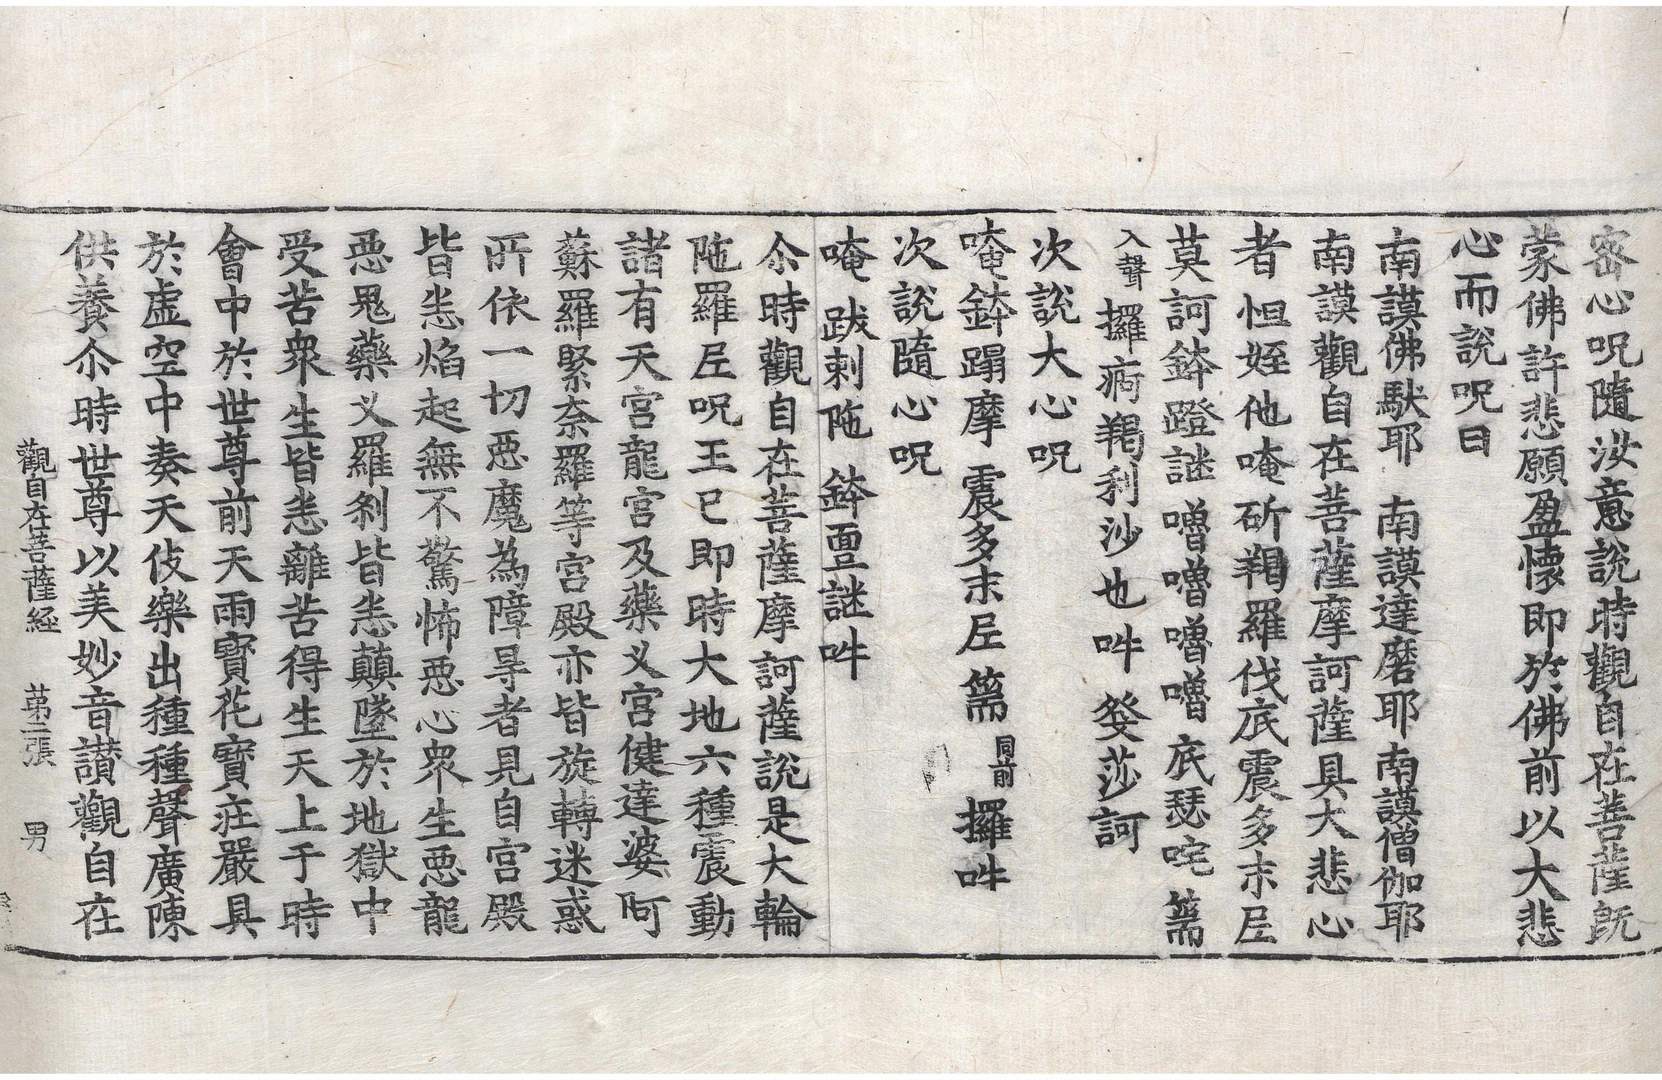 密心呪隨汝意說時觀自在菩薩旣
蒙佛許悲願盈懷即於佛前以大悲
心而說呪曰
南謨佛馱耶 南謨達磨耶 南謨僧伽耶
南謨觀自在菩薩摩訶薩具大悲心
者 怛姪他 唵 斫羯羅伐底 震多末尼
莫訶鉢蹬謎 嚕嚕嚕嚕 底瑟咤 篅
入聲 攞痾羯利沙也 吽 癹 莎訶
次說大心呪
唵 鉢蹋摩 震多末尼 篅 同前 攞 吽
次說隨心呪
唵 跋剌陁 鉢亶謎 吽
尒時觀自在菩薩摩訶薩說是大輪
陁羅尼呪王已即時大地六種震動
諸有天宮龍宮及藥叉宮健達婆阿
蘇羅緊奈羅等宮殿亦皆旋轉迷惑
所依一切惡魔為障㝵者見自宮殿
皆恙焰起無不驚怖惡心衆生惡龍
惡鬼藥叉羅剎皆恙顛墜於地獄中
受苦衆生皆恙離苦得生天上于時
會中於世尊前天雨寶花寶莊嚴具
於虛空中奏天伎樂出種種聲廣陳
供養尒時世尊以美妙音讚觀自在
觀自在菩薩經 第二張 男